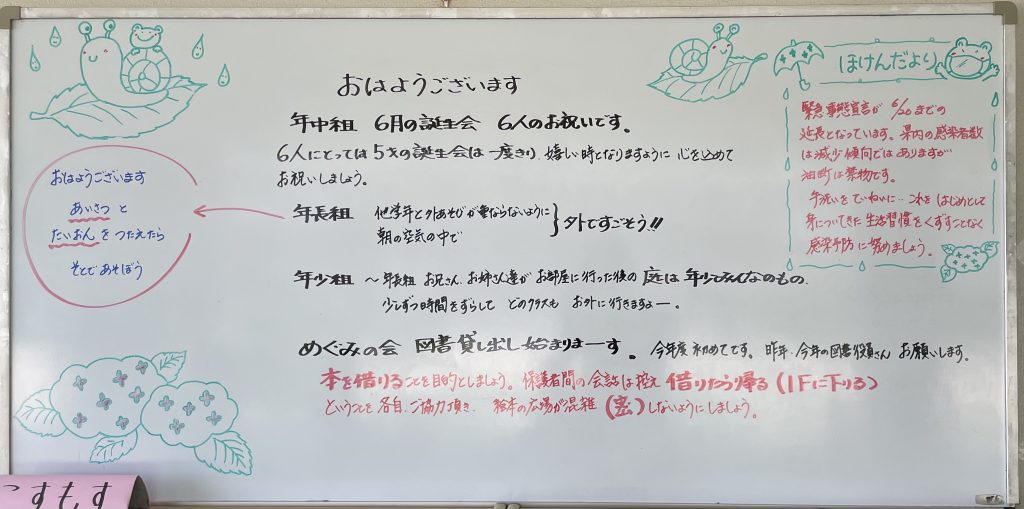 おはようございます
年中組 6月の誕生会 6人のお祝いです。
6人にとっては5才の誕生会は一度きり、嬉しい時となりますように 心を込めて
お祝いしましょう。
年長組 他学年と外あそびが重ならないように
朝の空気の中で
外ですごそう!!
年少組 〜年長組 お兄さん、お姉さん達が お部屋に行った後の 庭は 年少さんみんなのもの、
少しずつ時間をずらして どのクラスも お外に行きますよー。
めぐみの会 図書貸し出し始まりまーす。今年度 初めてです。昨年・今年の図書役員さん お願いします。
本を借りることを目的としましょう。保護者間の会話は控え 借りたら帰る(1Fに下りる)
ということを 各自、ご協力頂き、 絵本の広場が混雑(密)しないようにしましょう。
おはようございます
あいさつ と
たいおん を つたえたら
そとで あそぼう
ほけんだより
緊急事態宣言が 6/20までの
延長となっています。県内の感染者数
は減少傾向では ありますが
油断は禁物です。
手洗いを ていねいに… これを はじめとして
身についてきた 生活習慣を くずすことなく
感染予防に努めましょう。
こすもす